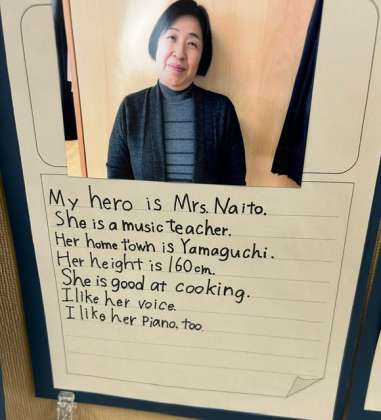 My hero is Mrs. Naito.
She is a music teacher.
Her home town is Yamaguchi.
Her height is 160cm.
She is good at cooking.
I like her voice.
I like her Piano, too